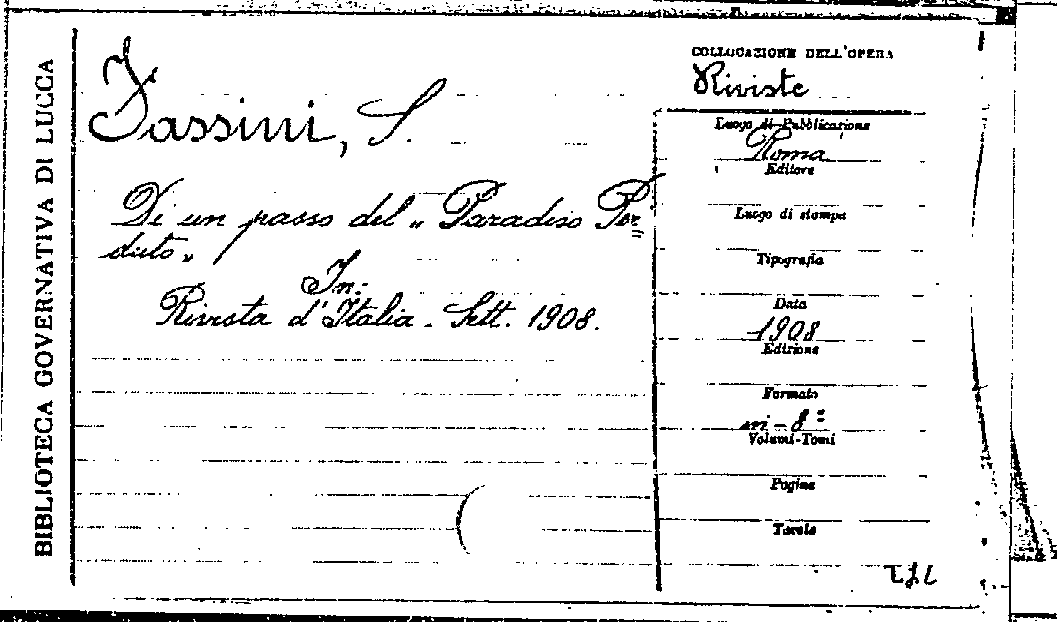 BIBLIOTECA GOVERNATIVA DI LUCCA
Fassini, S.
Di un passo del „ Paradiso Per=
duto „
In:
Rivista d'Italia - Sett. 1908.
COLLOCAZIONE DELL'OPERA
Riviste
Luogo di Pubblicazione
Roma
Editore
Luogo di stampa
Tipografia
Data
1908
Edizione
Formato
in-8°
Volumi-Tomi
Pagine
Tavole